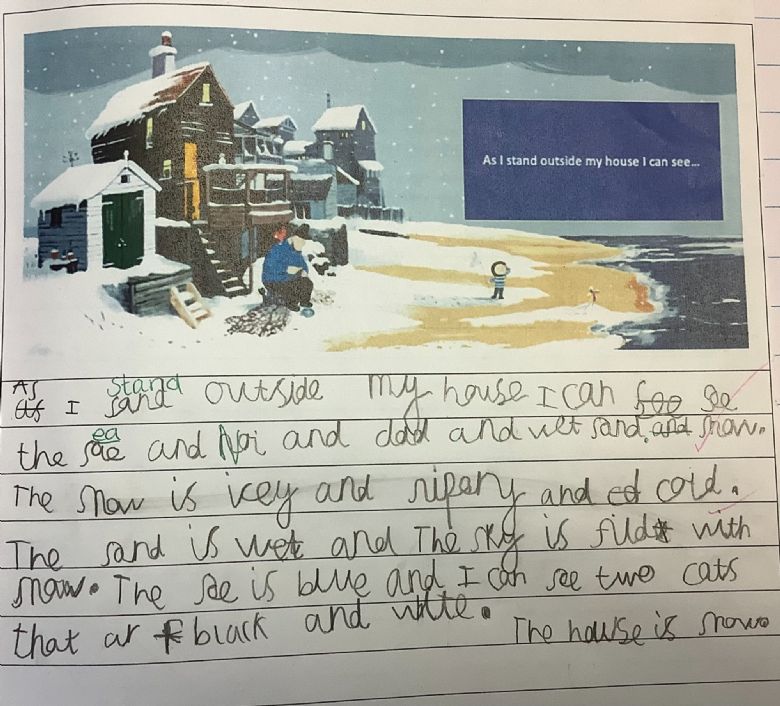 As I stand outside my house I can see...
As I sand stand outside my house I can see
the sae ea and Noi and dad and wet sand and snow.
The snow is icey and nipery and cold.
The sand is wet and The sky is fild with
snow. The sae is blue and I can see two cats
that ar black and wite. The house is snow